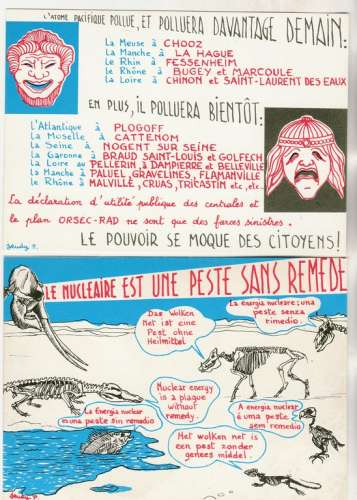 L'ATOME PACIFIQUE POLLUE, ET POLLUERA DAVANTAGE DEMAIN:
La Meuse à CHOOZ
La Manche à LA HAGUE
Le Rhin à FESSENHEIM
Le Rhône à BUGEY et MARCOULE
La Loire à CHINON et SAINT-LAURENT DES EAUX
EN PLUS, IL POLLUERA BIENTÔT:
L'Atlantique à PLOGOFF
La Moselle à CATTENOM
La Seine à NOGENT SUR SEINE
La Garonne à BRAUD SAINT-LOUIS et GOLFECH
La Loire au PELLERIN, à DAMPIERRE et BELLEVILLE
La Manche à PALUEL, GRAVELINES, FLAMANVILLE
le Rhône à MALVILLE, CRUAS, TRICASTIN etc, etc..
La déclaration d'utilité publique des centrales et
le plan ORSEC-RAD ne sont que des farces sinistres.
LE POUVOIR SE MOQUE DES CITOYENS!
LE NUCLEAIRE EST UNE PESTE SANS REMEDE
Das Wolken
Net ist eine
Pest ohne
Heilmittel
La energia nucleare: una
peste senza
rimedio.
Nuclear energy
is a plague
without
remedy.
La énergia nuclear
es una peste sin remedio
A energia nuclear
é uma peste
sem remedio
Het wolken net is
een pest zonder
genees middel.